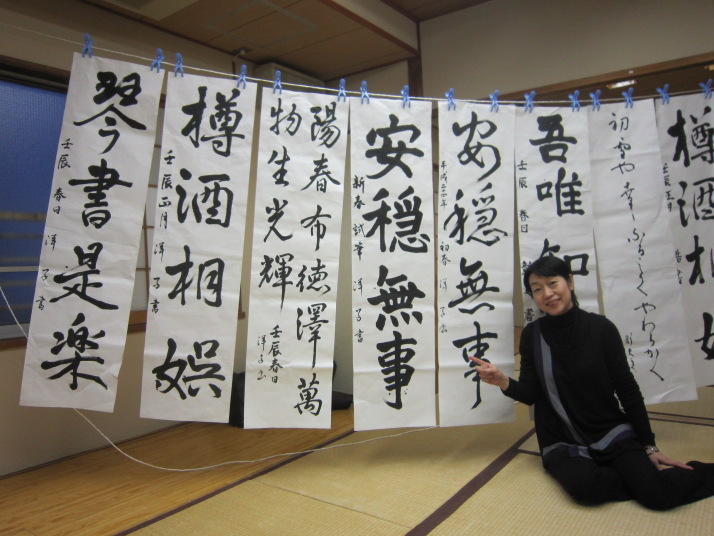 琴書是楽
壬辰 春日 洋子書
樽酒相娯
壬辰正月 洋子書
陽春布徳澤萬
物生光輝
壬辰春日
洋子書
安穏無事
新春 試筆 洋子書
安穏無事
平成廿四年 初春 洋子書
吾唯知
壬辰 春日 書
初雪や幸ふるごとくやわらかく
樽酒相
壬辰正月 書